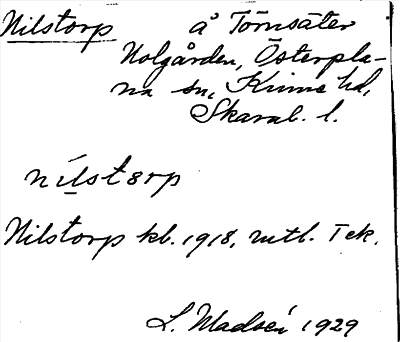 Nilstorp å Törnsäter
Nolgården, Österpla-
na sn, Kinne hd,
Skarab. l.
nilstɵrp
Nilstorp kb. 1918, mtl. Tek.
L. Madsén 1929